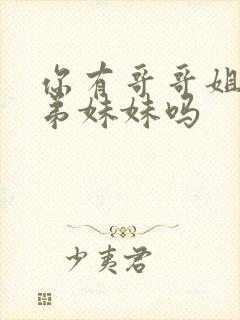 你有哥哥姐
弟妹妹吗
少夷君